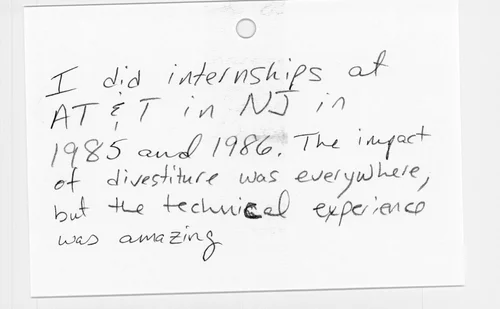 I did internships at
AT&T in NJ in
1985 and 1986. The impact
of divestiture was everywhere,
but the technical experience
was amazing